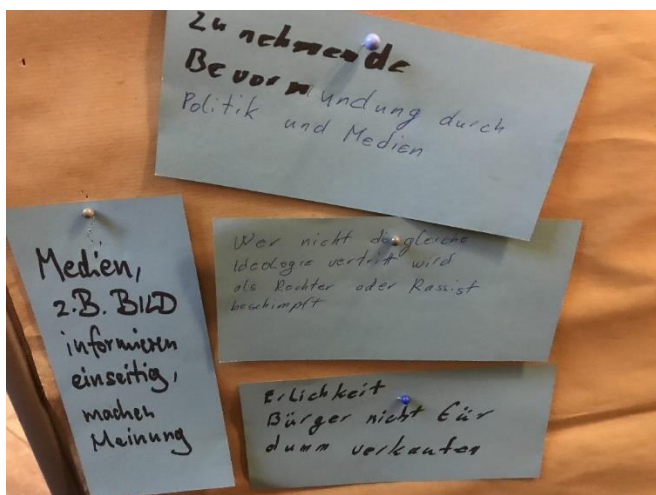 Zunehmende
Bevormundung durch
Politik und Medien
Medien,
z.B. BILD
informieren
einseitig,
machen
Meinung
Wer nicht die gleiche
Ideologie vertritt wird
als Rechter oder Rassist
beschimpft
Erlichkeit
Bürger nicht für
dumm verkaufen